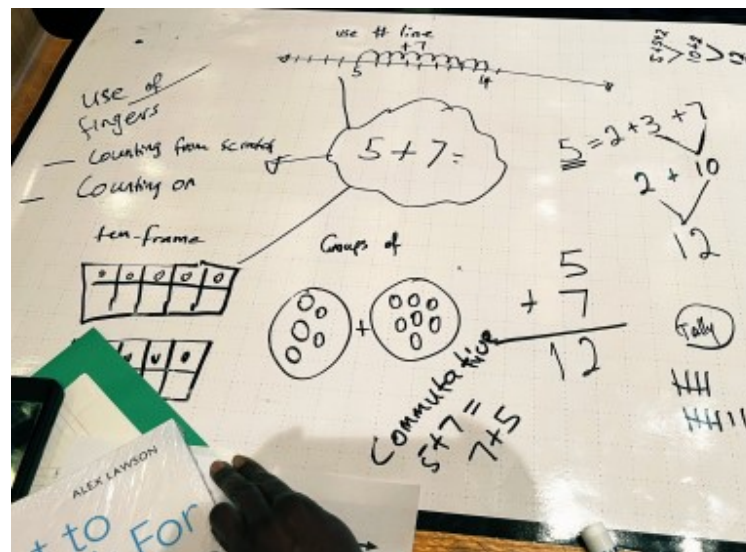 use # line
+7
5
14
5+5+2
10+2
12
Use of
fingers
— Counting from scratch
— Counting on
5 + 7 =
5 = 2 + 3 + 7
2 + 10
12
ten-frame
Groups of
+
5
+ 7
12
Commutative
5+7=
7+5
Tally
ALEX LAWSON
to
For